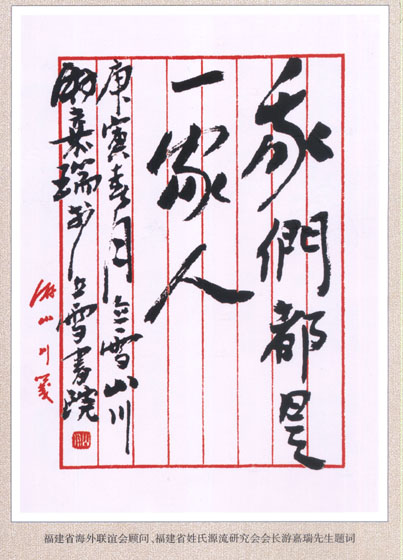 我們都是
一家人
庚寅春月立雪山川
游嘉瑞於立雪書院
游山川箋
福建省海外联谊会顾问、福建省姓氏源流研究会会长游嘉瑞先生题词